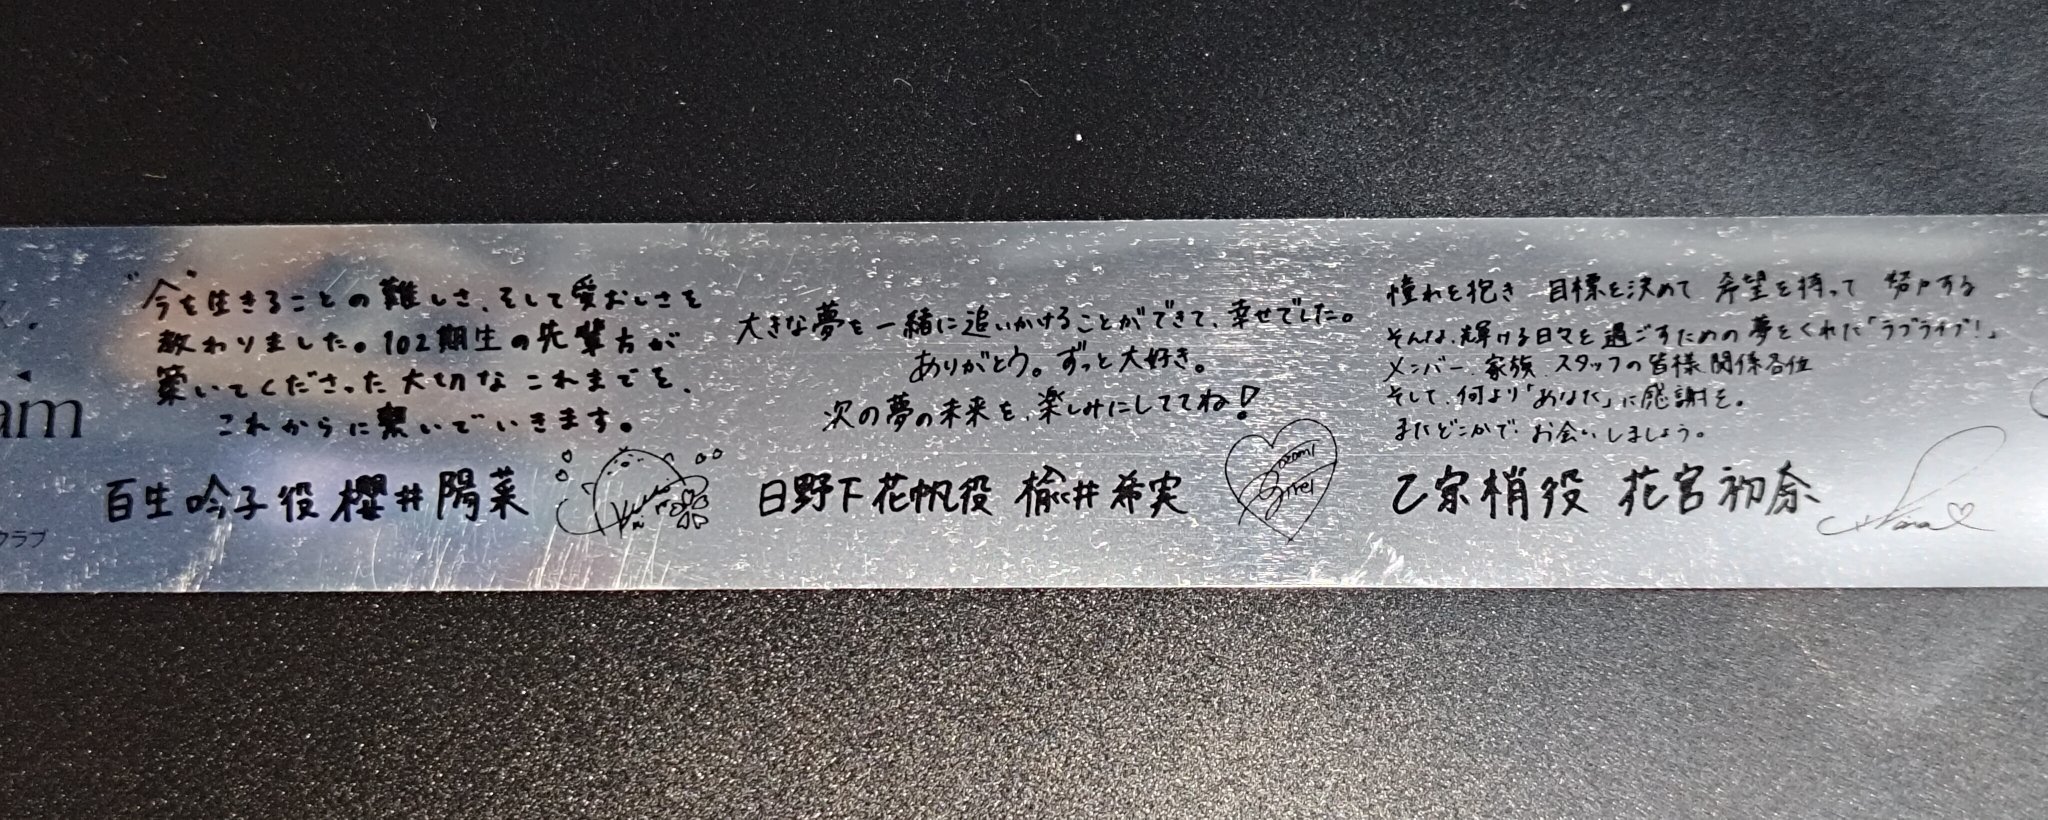 am
クラブ
"今"を生きることの難しさ、そして愛おしさを
教わりました。102期生の先輩方が
築いてくださった大切なこれまでを、
これからに繋いでいきます。
百生吟子役 櫻井陽菜
大きな夢を一緒に追いかけることができて、幸せでした。
ありがとう。ずっと大好き。
次の夢の未来を、楽しみにしててね!
日野下花帆役 楡井希実
Nozomi
Nirei
憧れを抱き 目標を決めて 希望を持って 努力する
そんな輝ける日々を過ごすための夢をくれた「ラブライブ!」
メンバー、家族、スタッフの皆様、関係各位
そして、何より「あなた」に感謝を。
またどこかで、お会いしましょう。
乙宗梢役 花宮初奈
Nina